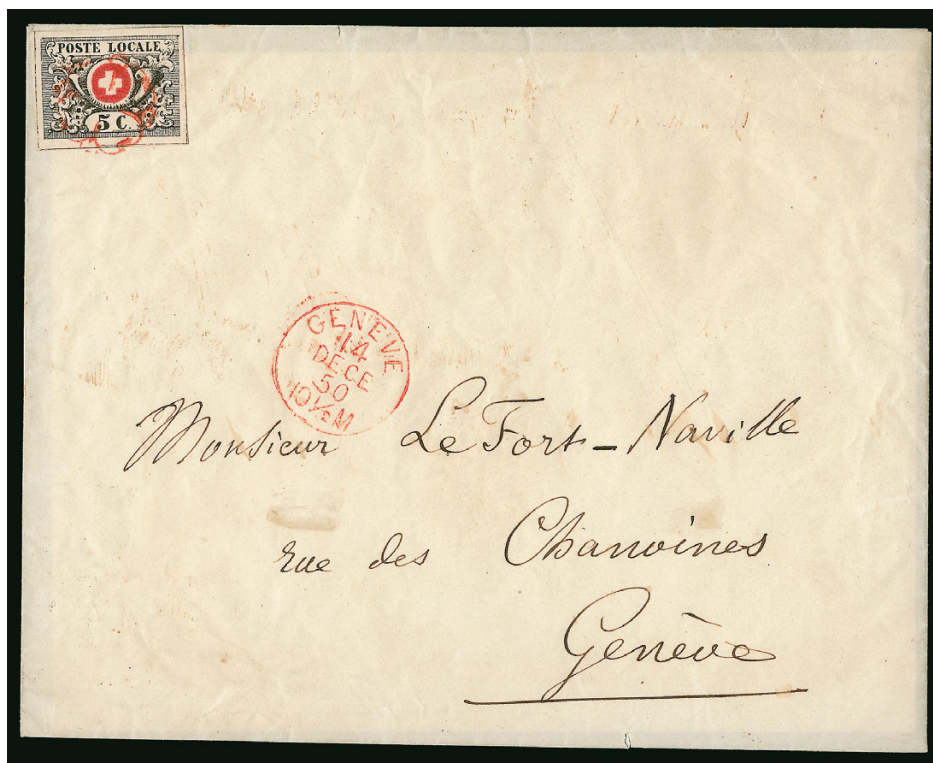 POSTE LOCALE
5 C.
GENEVE
14
DECE
50
10½M
Monsieur Le Fort-Naville
rue des Chanoines
Genève